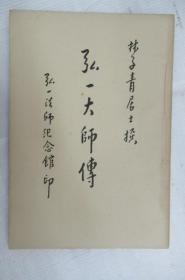 林子青居士撰
弘一大師傳
弘一法師纪念館印